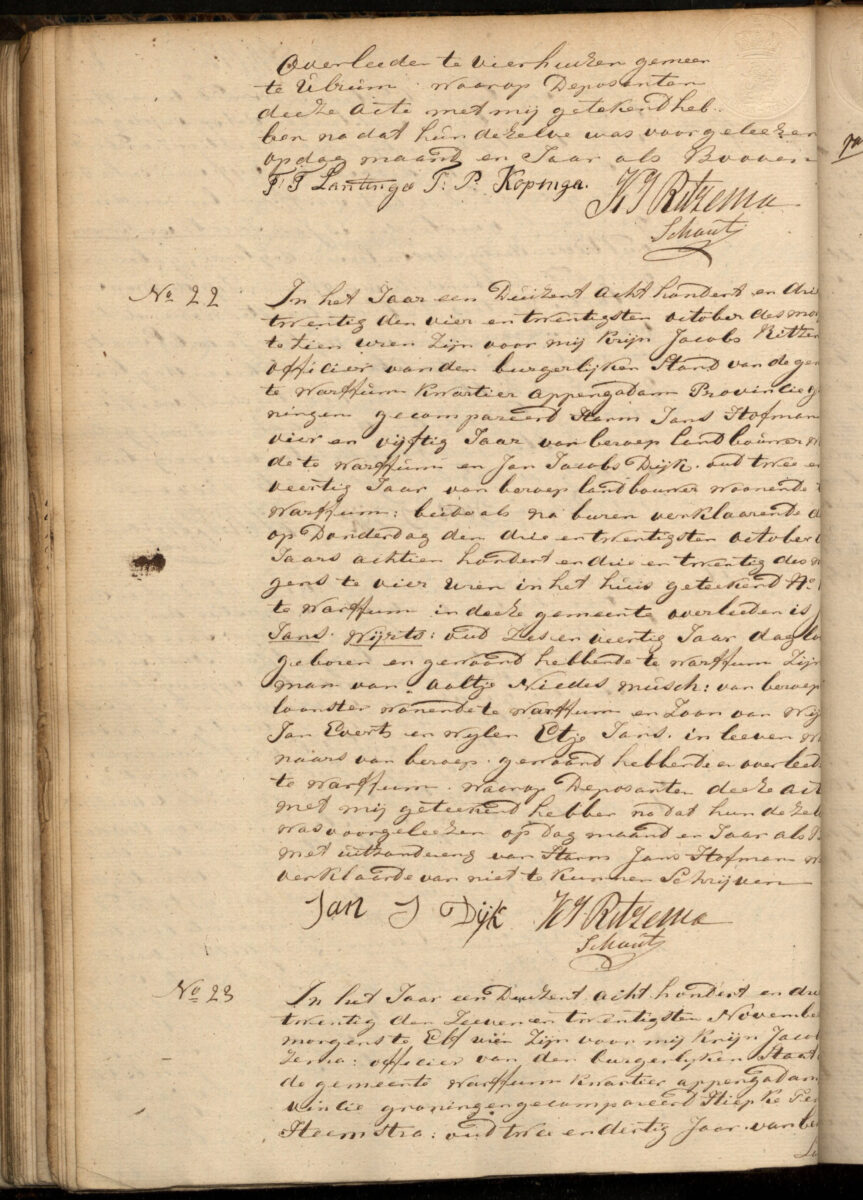 Overleeden te vierhuizen gemeen
te Ulrum waarop Deposanten
deeze Acte met mij getekend heb
ben na dat hun dezelve was voorgeleezen
op dag maand en Jaar als Booven
F F Lantinga T: P. Kopinga. KJ Ritzema
Schout
No 22 In het Jaar een Duizent acht hondert en drie
twentig den vier en twentigsten october des mor
te tien uren Zijn voor mij Krijn Jacobs Ritze
officier van den burgerlijken Stand van de gem
te Warffum kwartier appengadam Provintie g
ningen gecompareerd Harm Jans Hofman
vier en vijftig Jaar van beroep landbouwer w
de te warffum en Jan Jacobs Dijk. oud twee en
veertig Jaar van beroep landbouwer woonende t
Warffum: beide als na buren verklaarende d
op Donderdag den drie en twentigsten october
Jaars achtien hondert en drie en twentig des m
gens te vier uren in het huis geteekend No
te warffum in deeze gemeente overleeden is
Jans Wijrts: oud Zes en veertig Jaar daglo
geboren en gewoond hebbende te warffum Zijn
man van Aaltje Niedes musch: van beroep
loonster wonende te warffum en Zoon van Wij
Jan Everts en wylen Etje Jans. in leeven
naars van beroep gewoond hebbende en overleed
te warffum. waarop Deposanten deeze act
met mij geteekend hebben na dat hun deze
was voorgeleezen op dag maand en Jaar als
met uitzondereng van Harm Jans Hofman
verklaarde van niet te kunnen Schrijven
Jan J Dijk KJ Ritzema
Schout
No 23 In het Jaar een Duizent acht hondert en drie
twentig den Zeeven en twentigsten November
morgens te Elf uren Zijn voor mij Krijn Jacob
zema: officier van den burgerlyken Staat
de gemeente warffum kwartier appengadam
vintie groningen gecompareerd Hiepke
Heemstra: oud twee en dertig Jaar van be